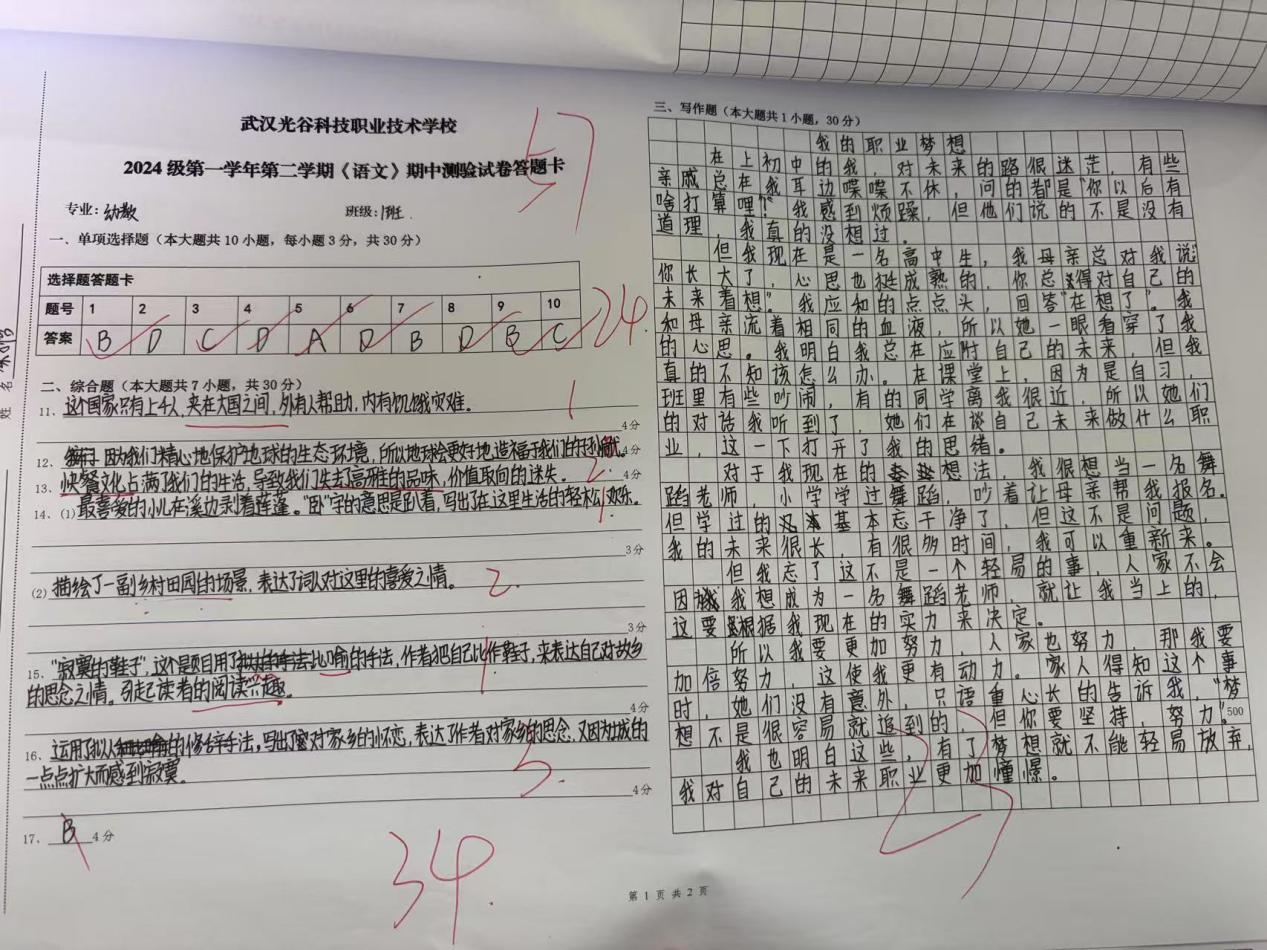 武汉光谷科技职业技术学校
2024级第一学年第二学期《语文》期中测验试卷答题卡
57
专业：幼教 班级：1班
姓名
一、单项选择题（本大题共10小题，每小题3分，共30分）
选择题答题卡
题号 1 2 3 4 5 6 7 8 9 10
答案 B D C D A D B D B C
24
二、综合题（本大题共7小题，共30分）
11、这个国家只有上千人，夹在大国之间，外有人帮助，内有饥饿灾难。
1
4分
12、因为我们精心地保护地球的生态环境，所以地球会更好地造福于我们的子孙。
4分
13、快餐文化占满了我们的生活，导致我们失去了高雅的品味，价值取向的迷失。
2
14、(1)最喜爱的小儿在溪边剥着莲蓬。“卧”字的意思是趴着，写出了在这里生活的轻松，欢乐。
1
3分
(2)描绘了一副乡村田园的场景，表达了词人对这里的喜爱之情。
2
3分
15、“寂寞的鞋子”，这个题目用了比喻的手法，作者把自己比作鞋子，来表达自己对故乡
的思念之情。引起读者的阅读兴趣。
4分
16、运用了拟人的修辞手法。写出了对家乡的怀恋，表达了作者对家乡的思念，又因为城的
一点点扩大而感到寂寞。
3
4分
17、B 4分
34
三、写作题（本大题共1小题，30分）
我的职业梦想
在上初中的我，对未来的路很迷茫，有些
亲戚总在我耳边喋喋不休，问的都是“你以后有
啥打算哩？”我感到烦躁，但他们说的不是没有
道理，我真的没想过。
但我现在是一名高中生，我母亲总对我说“
你长大了，心思也挺成熟的，你总得对自己的
未来着想”。我应和的点点头，回答“在想了”。我
和母亲流着相同的血液，所以她一眼看穿了我
的心思。我明白我总在应付自己的未来，但我
真的不知该怎么办。在课堂上，因为是自习，
班里有些吵闹，有的同学离我很近，所以她们
的对话我听到了，她们在谈自己未来做什么职
业，这一下打开了我的思绪。
对于我现在的想法，我很想当一名舞
蹈老师，小学学过舞蹈，吵着让母亲帮我报名。
但学过的基本忘干净了，但这不是问题，
我的未来很长，有很多时间，我可以重新来。
但我忘了这不是一个轻易的事，人家不会
因我想成为一名舞蹈老师，就让我当上的，
这要根据我现在的实力来决定。
所以我要更加努力，人家也努力，那我要
加倍努力，这使我更有动力。家人得知这个事
时，她们没有意外，只语重心长的告诉我，“梦
想不是很容易就追到的，但你要坚持，努力。”
500
我也明白这些，有了梦想就不能轻易放弃，
我对自己的未来职业更加憧憬。
23
第1页共2页